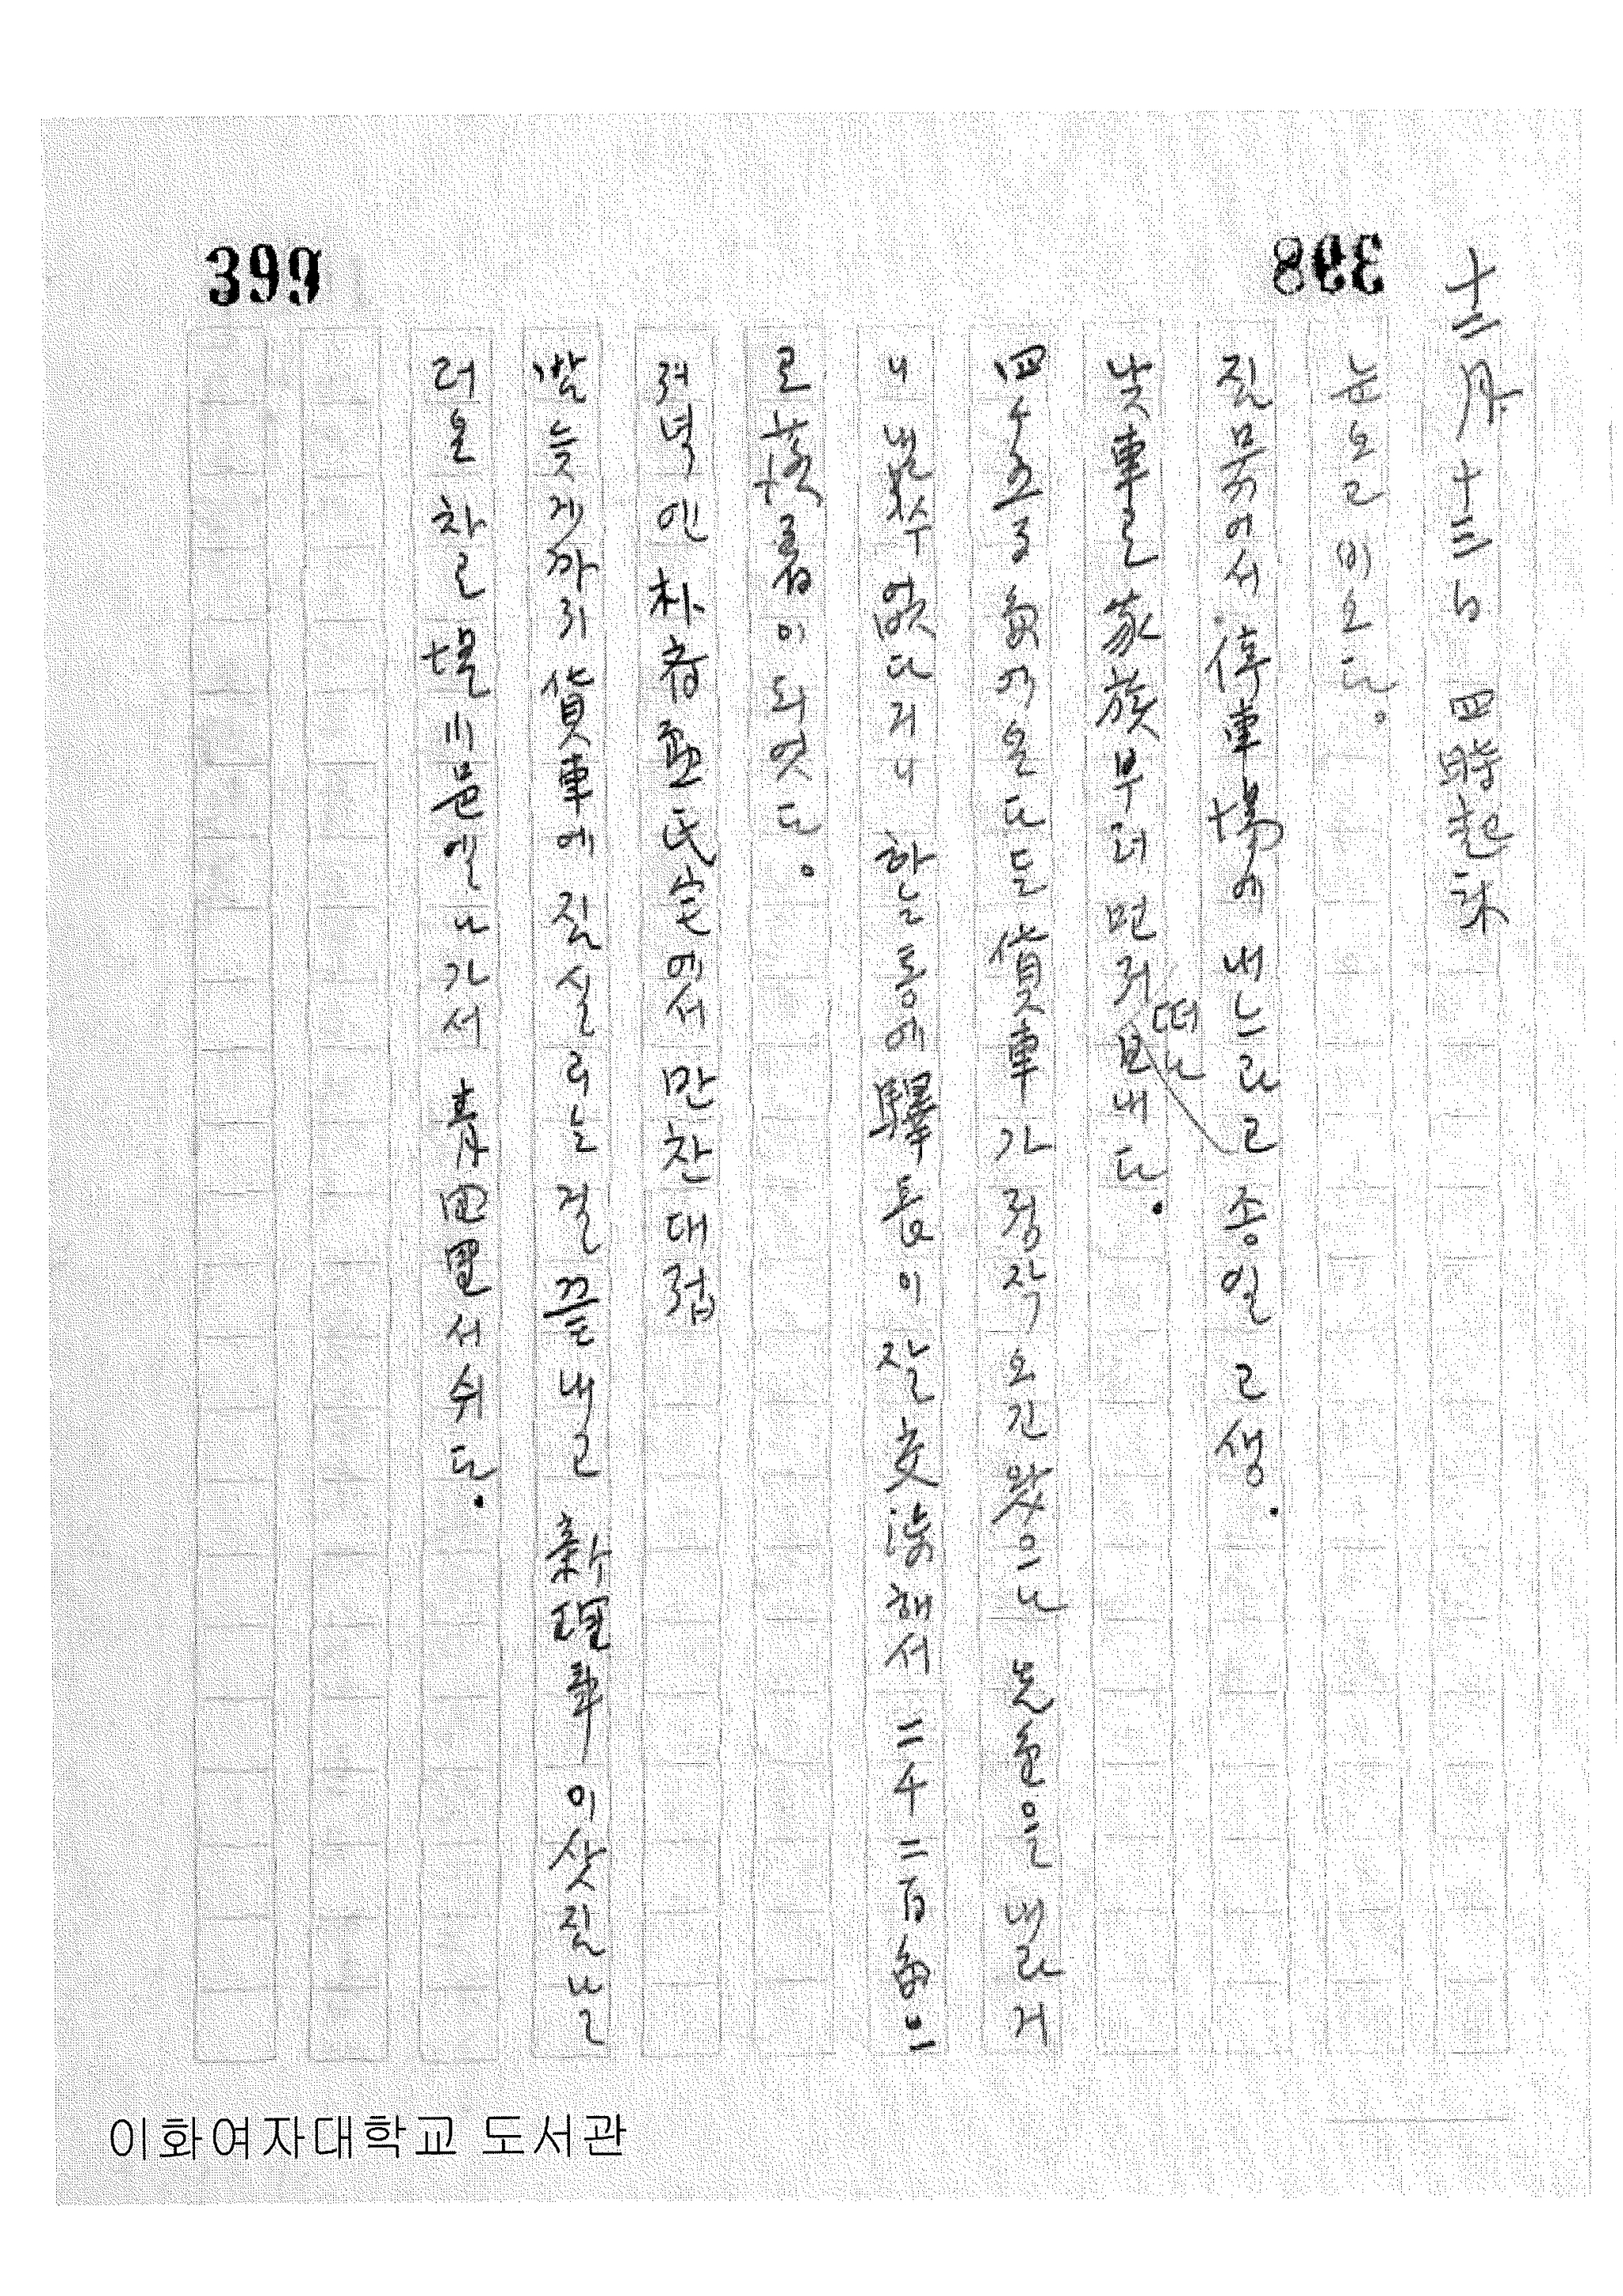 399
398
十二月十三日 四時起床
눈 오고 비 오다.
짐 묶어서 停車場에 내느라고 종일 고생.
낮車로 家族부터 먼저 떠나보내다.
四千五百圓이 온다든 貨車가 정작 오긴 왔으나 先金을 내라거
니 낼 수 없다거니 하는 통에 驛長이 잘 交涉해서 三千二百圓으
로 落着이 되엿다.
저녁엔 朴容 氏宅에서 만찬 대접
밤 늦게까지 貨車에 짐 실리는 걸 끝내고 牽引車 이삿짐 날
러온 차로 小邑엘 나가서 靑田 서 쉬다.
이화여자대학교 도서관